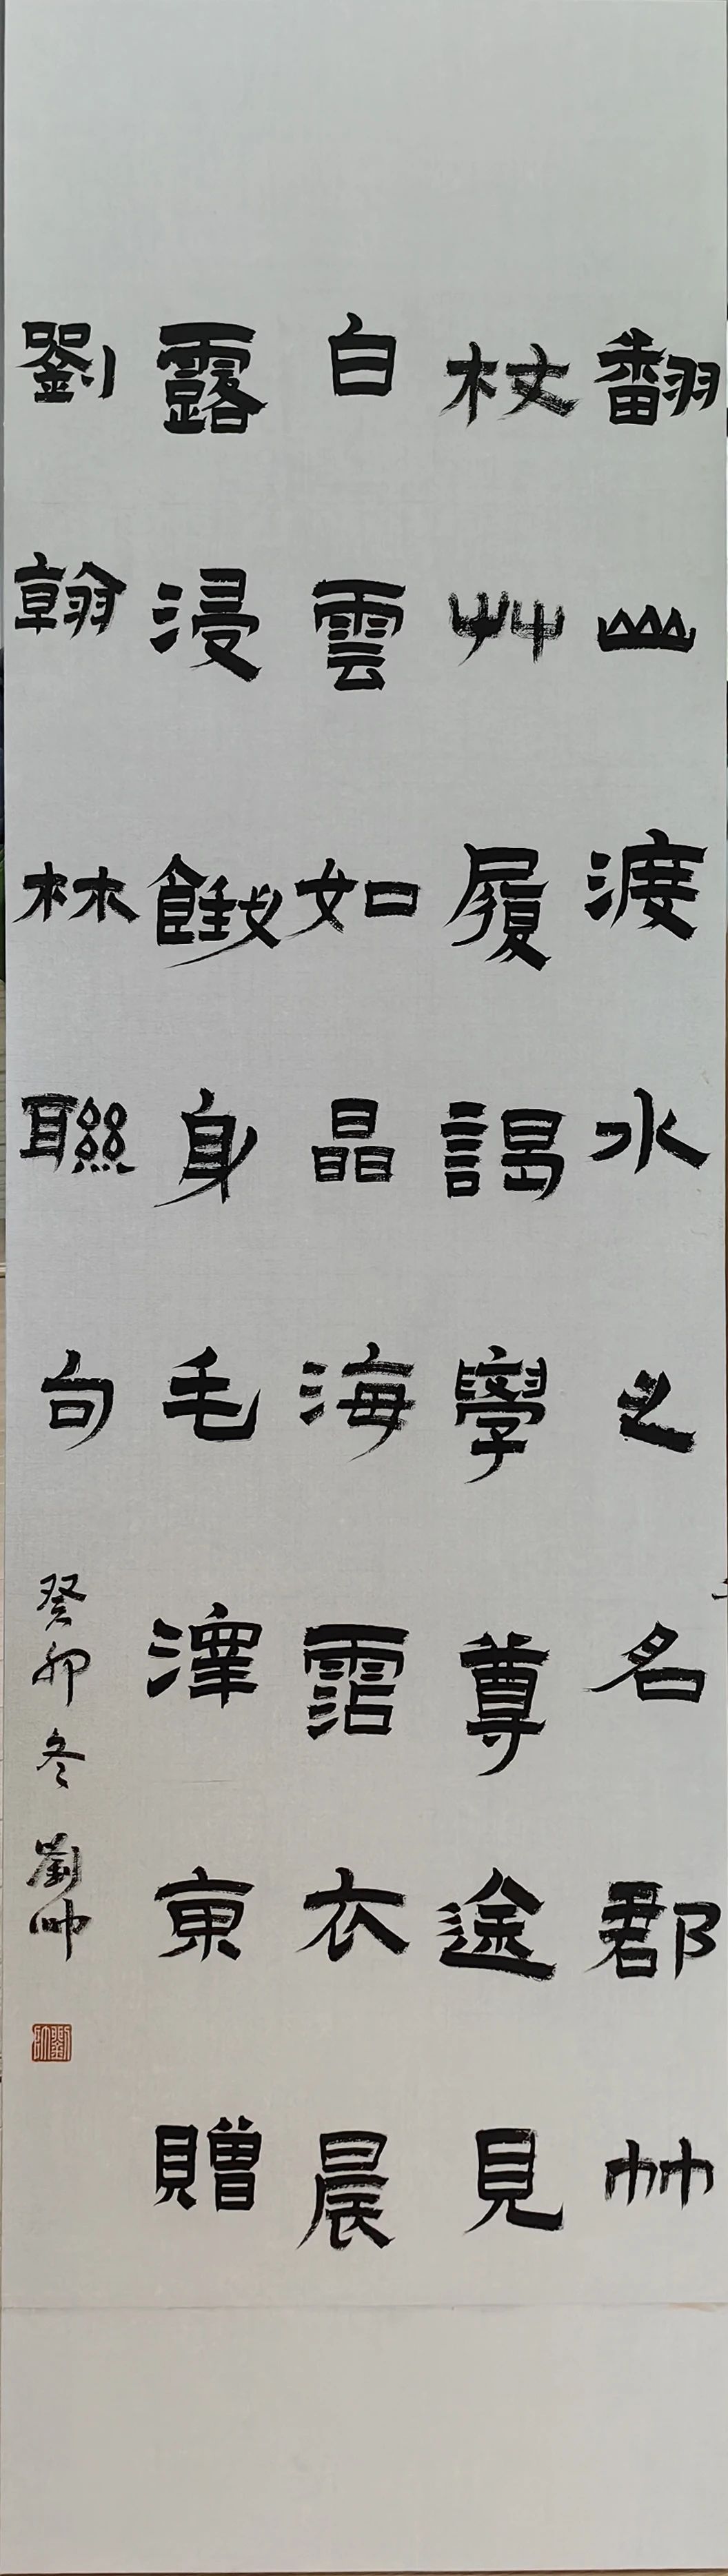 翻山渡水之名郡竹
杖艸履謁學尊途見
白雲如晶海霑衣晨
露浸餓身毛澤東贈
劉翰林聯句癸卯冬劉帥